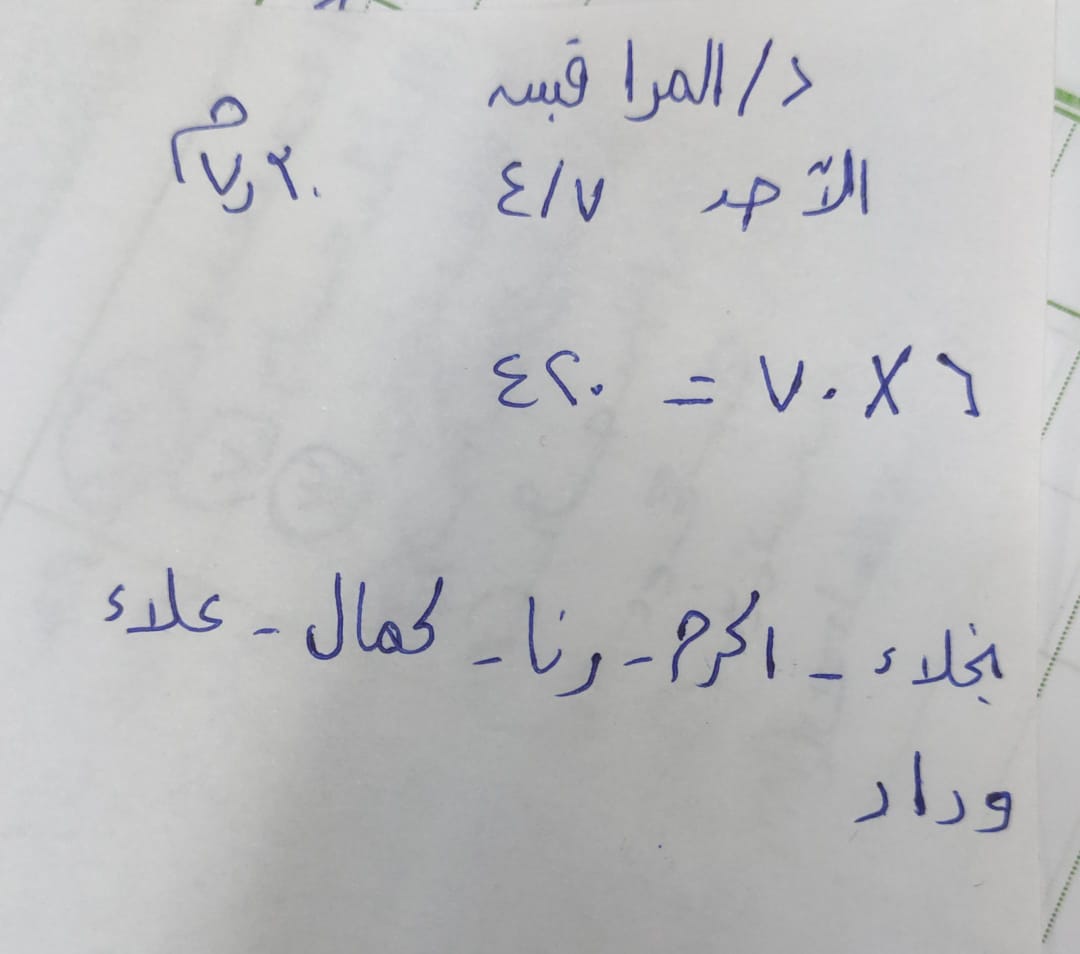 د/ المراقبه
الأحد ٤/٧
٦ × ٧٠ = ٤٢٠
نجلاء - اكرم - رنا - كمال - علاء
وداد